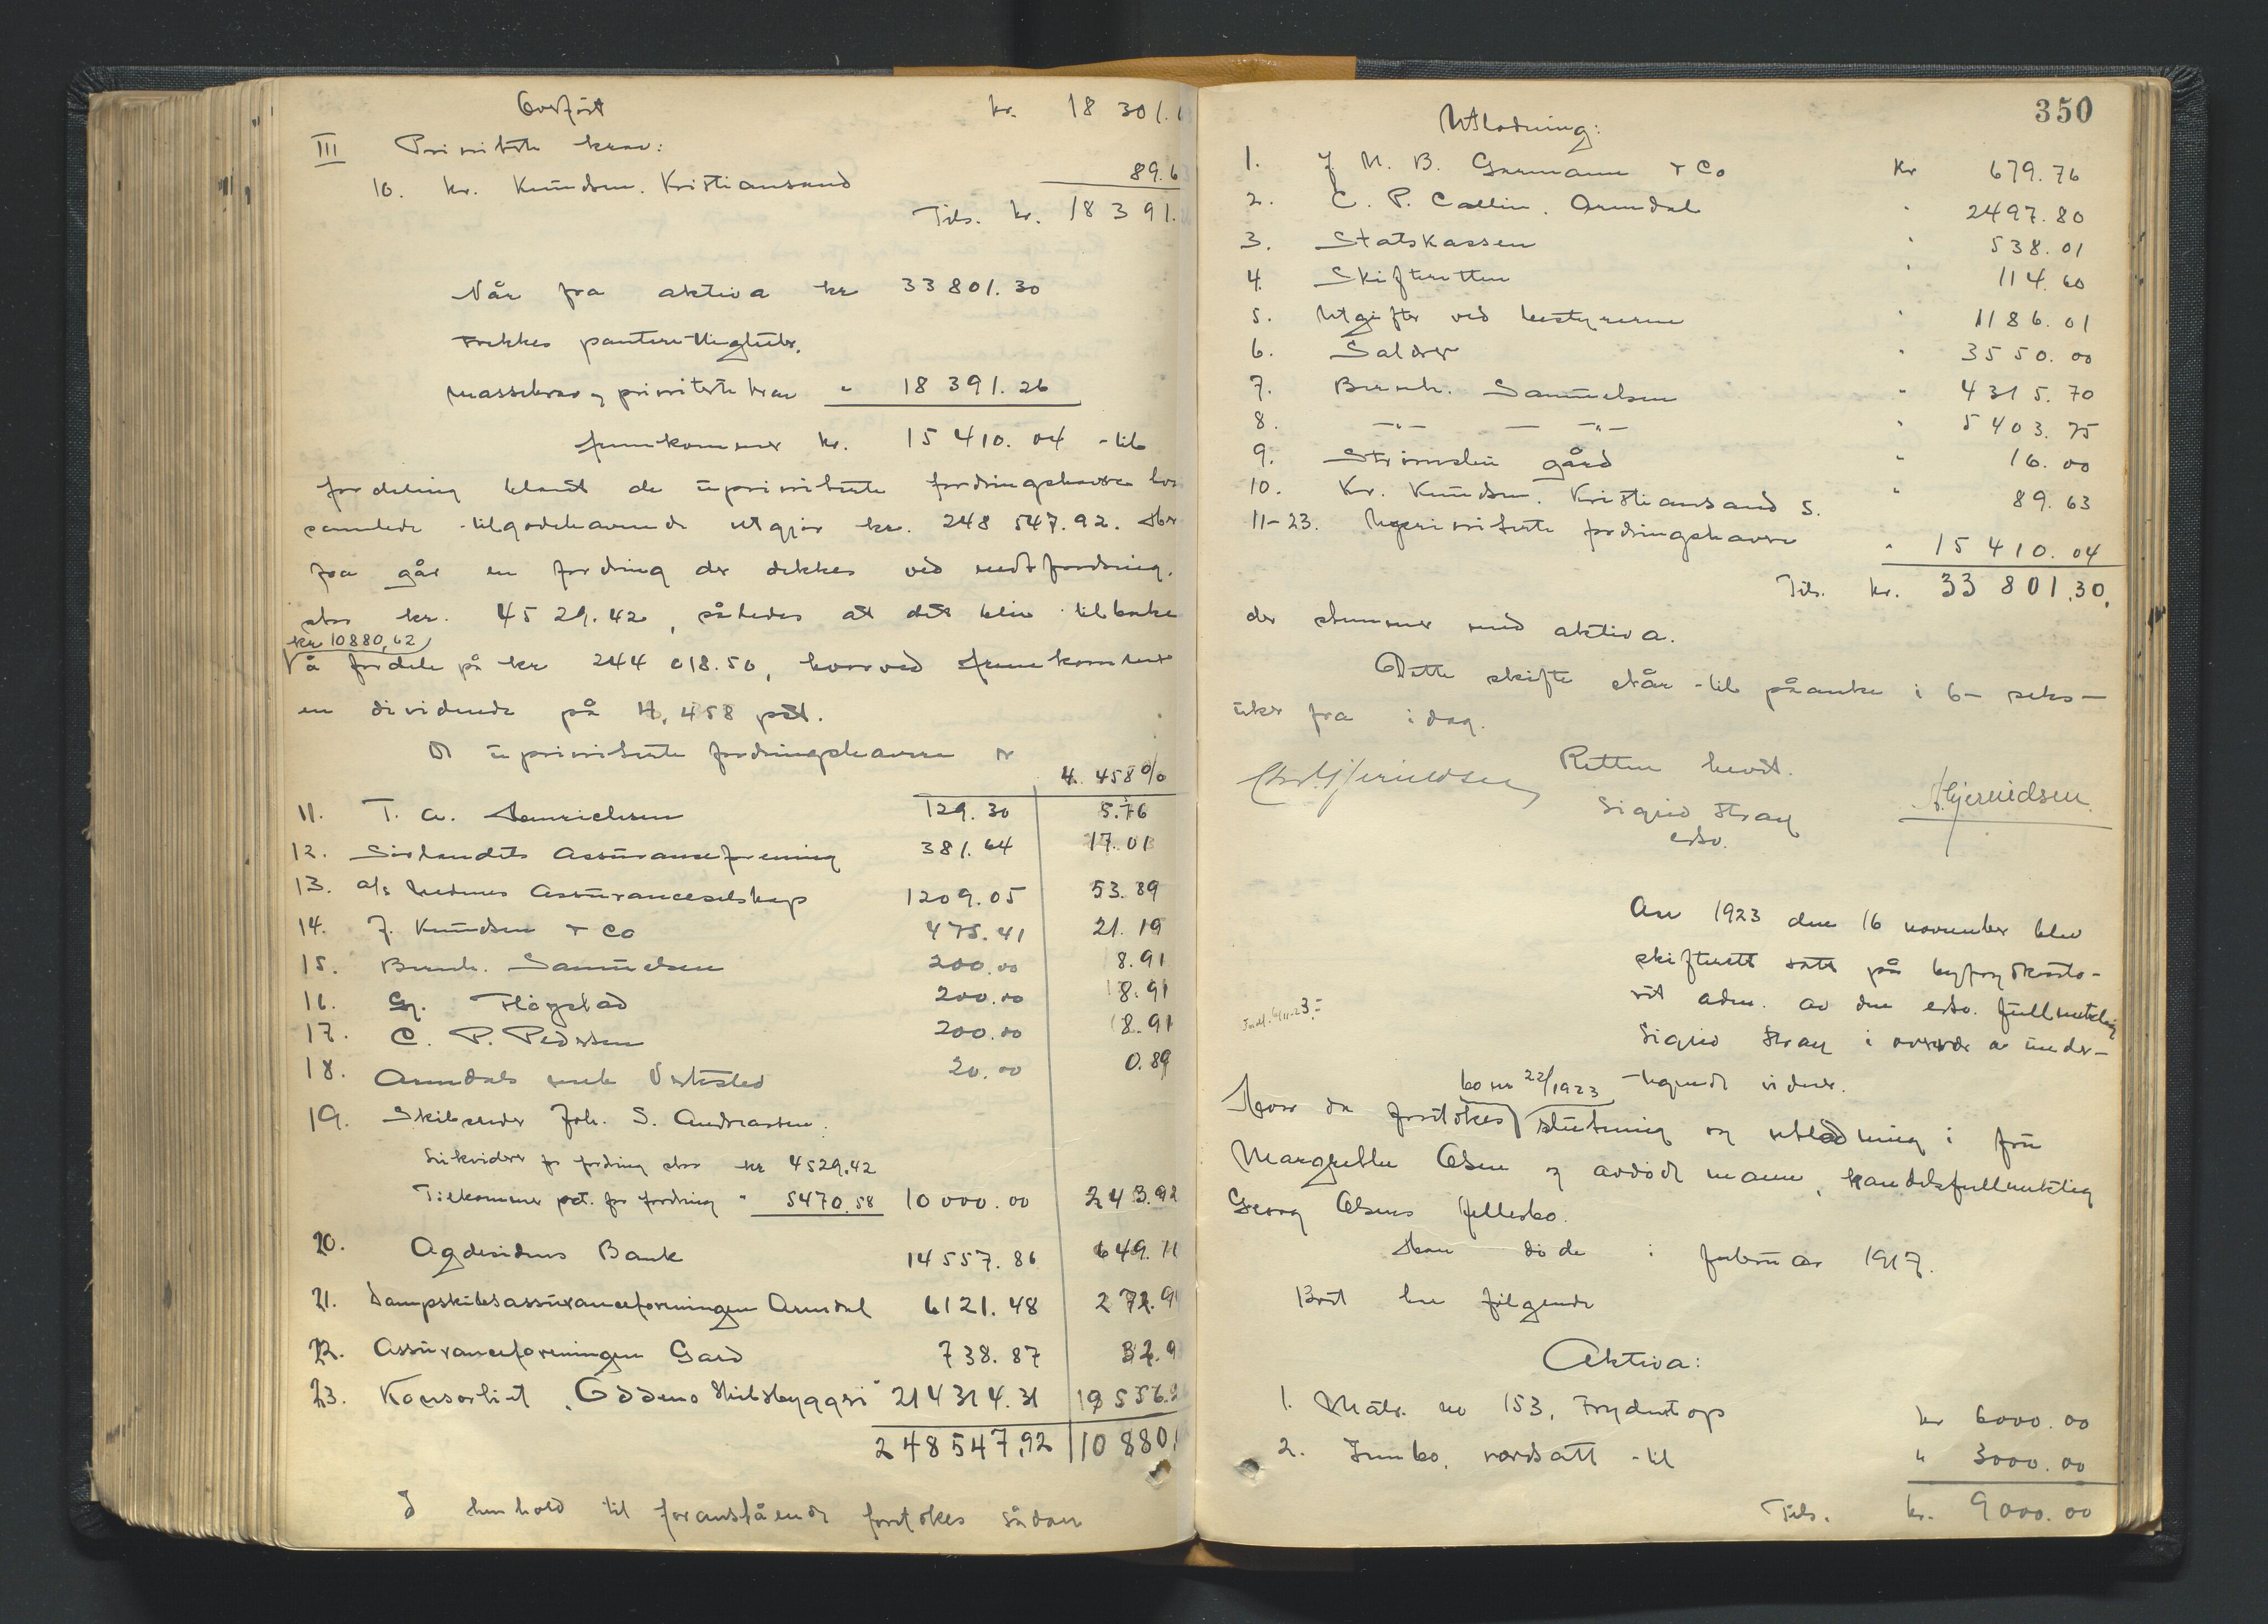 Overført kr. 18 301.
III Prioriterte krav:
10. Kr. Knudsen. Kristiansand 89.6
Tils. kr. 18 391.
Når fra aktiva kr 33801.30
trekkes panterettigheter,
massekrav og prioriterte krav " 18 391.26
fremkommer kr. 15 410.04 til
fordeling blandt de uprioriterte fordringshavere hvis
samlede tilgodehavende utgjør kr. 248 547.92. Her
fra går en fordring der dekkes ved motfordring,
stor kr. 4529.42, således at det blir tilbake
kr 10880,62
å fordele på kr 244 018.50, hvorved fremkommer
en dividende på 4,458 pct.
De uprioriterte fordringshavere er
4.458%
11. T. A. Henrichsen 129.30 5.76
12. Sørlandets Assuranceforening 381.64 17.01
13. a/s Assuranceselskap 1209.05 53.89
14. J. Knudsen & Co 475.41 21.19
15. Bernh. Samuelsen 200.00 8.91
16. G. Fløystad 200.00 8.91
17. C. P. Pedersen 200.00 8.91
18. Arendals mek Verksted 20.00 0.89
19. Skibsreder Joh. S. Andreassen:
Likviderer for fordring stor kr 4529.42
Tilkommer pct. for fordring " 5470.58 10000.00 243.92
20. Agdesidens Bank 14557.86 649.11
21. Dampskibsassuranceforeningen Arendal 6121.48 272.9
22. Assuranceforeningen Gard 738.87 32.9
23. Konsortiet "Oddens Skibsbyggeri" 214314.31 9556.
248547,92 10 880,
I henhold til foranstående foretokes sådan
350
Utlodning:
1. J M. B. Garmann & Co Kr 679.76
2. C. P. Callin. Arendal " 2497.80
3. Statskassen " 538.01
4. Skifteretten " 114.60
5. Utgifter ved bestyrerne " 1186.01
6. Salærer " 3550.00
7. Bernh. Samuelsen " 4315.70
8. —"— — —"— " 5403.75
9. Strømslin gård " 16.00
10. Kr. Knudsen. Kristiansand S. " 89.63
11-23. Uprioriterte fordringshavere " 15410.04
Tils. kr. 33 801.30,
der stemmer med aktiva.
Dette skifte står til påanke i 6- seks-
uker fra idag.
Retten hevet.
Sigrid Stray
edsv.
Gjeruldsen
An 1923 den 16 november blev
skifterett satt på byfogdkonto-
ret adm. av den edsv. fullmektig
Sigrid Stray i overvær av under-
tegnede vidner.
Hvor da foretokes bo nr 22/1923 slutning og utlodning i fru
Margrethe Olsen og avdøde mann, handelsfullmektig
Georg Olsens fellesbo.
Han døde i februar 1917.
Boet har følgende
Aktiva:
1. Matr. no 153, Frydentop kr 6000.00
2. Innbo, verdsatt til " 3000.00
Tils. kr. 9000.00